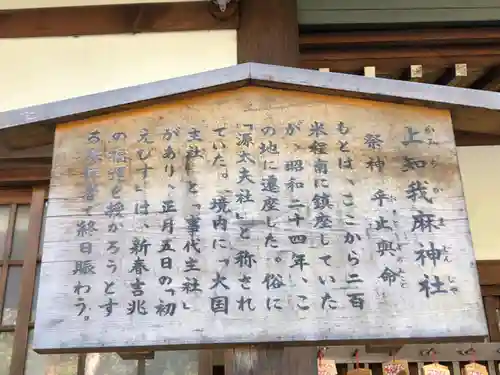 上知我麻神社
かみちかまじんじゃ
祭神 乎止與命
もとは、ここから二百
米程南に鎮座していた
が、昭和二十四年、こ
の地に遷座した。俗に
「源太夫社」と称され
ていて、境内に「大国
主社」と「事代主社」
があり、正月五日の「初
えびす」は、新春吉兆
の福運を授かろうとす
る参拝者で終日賑わう。